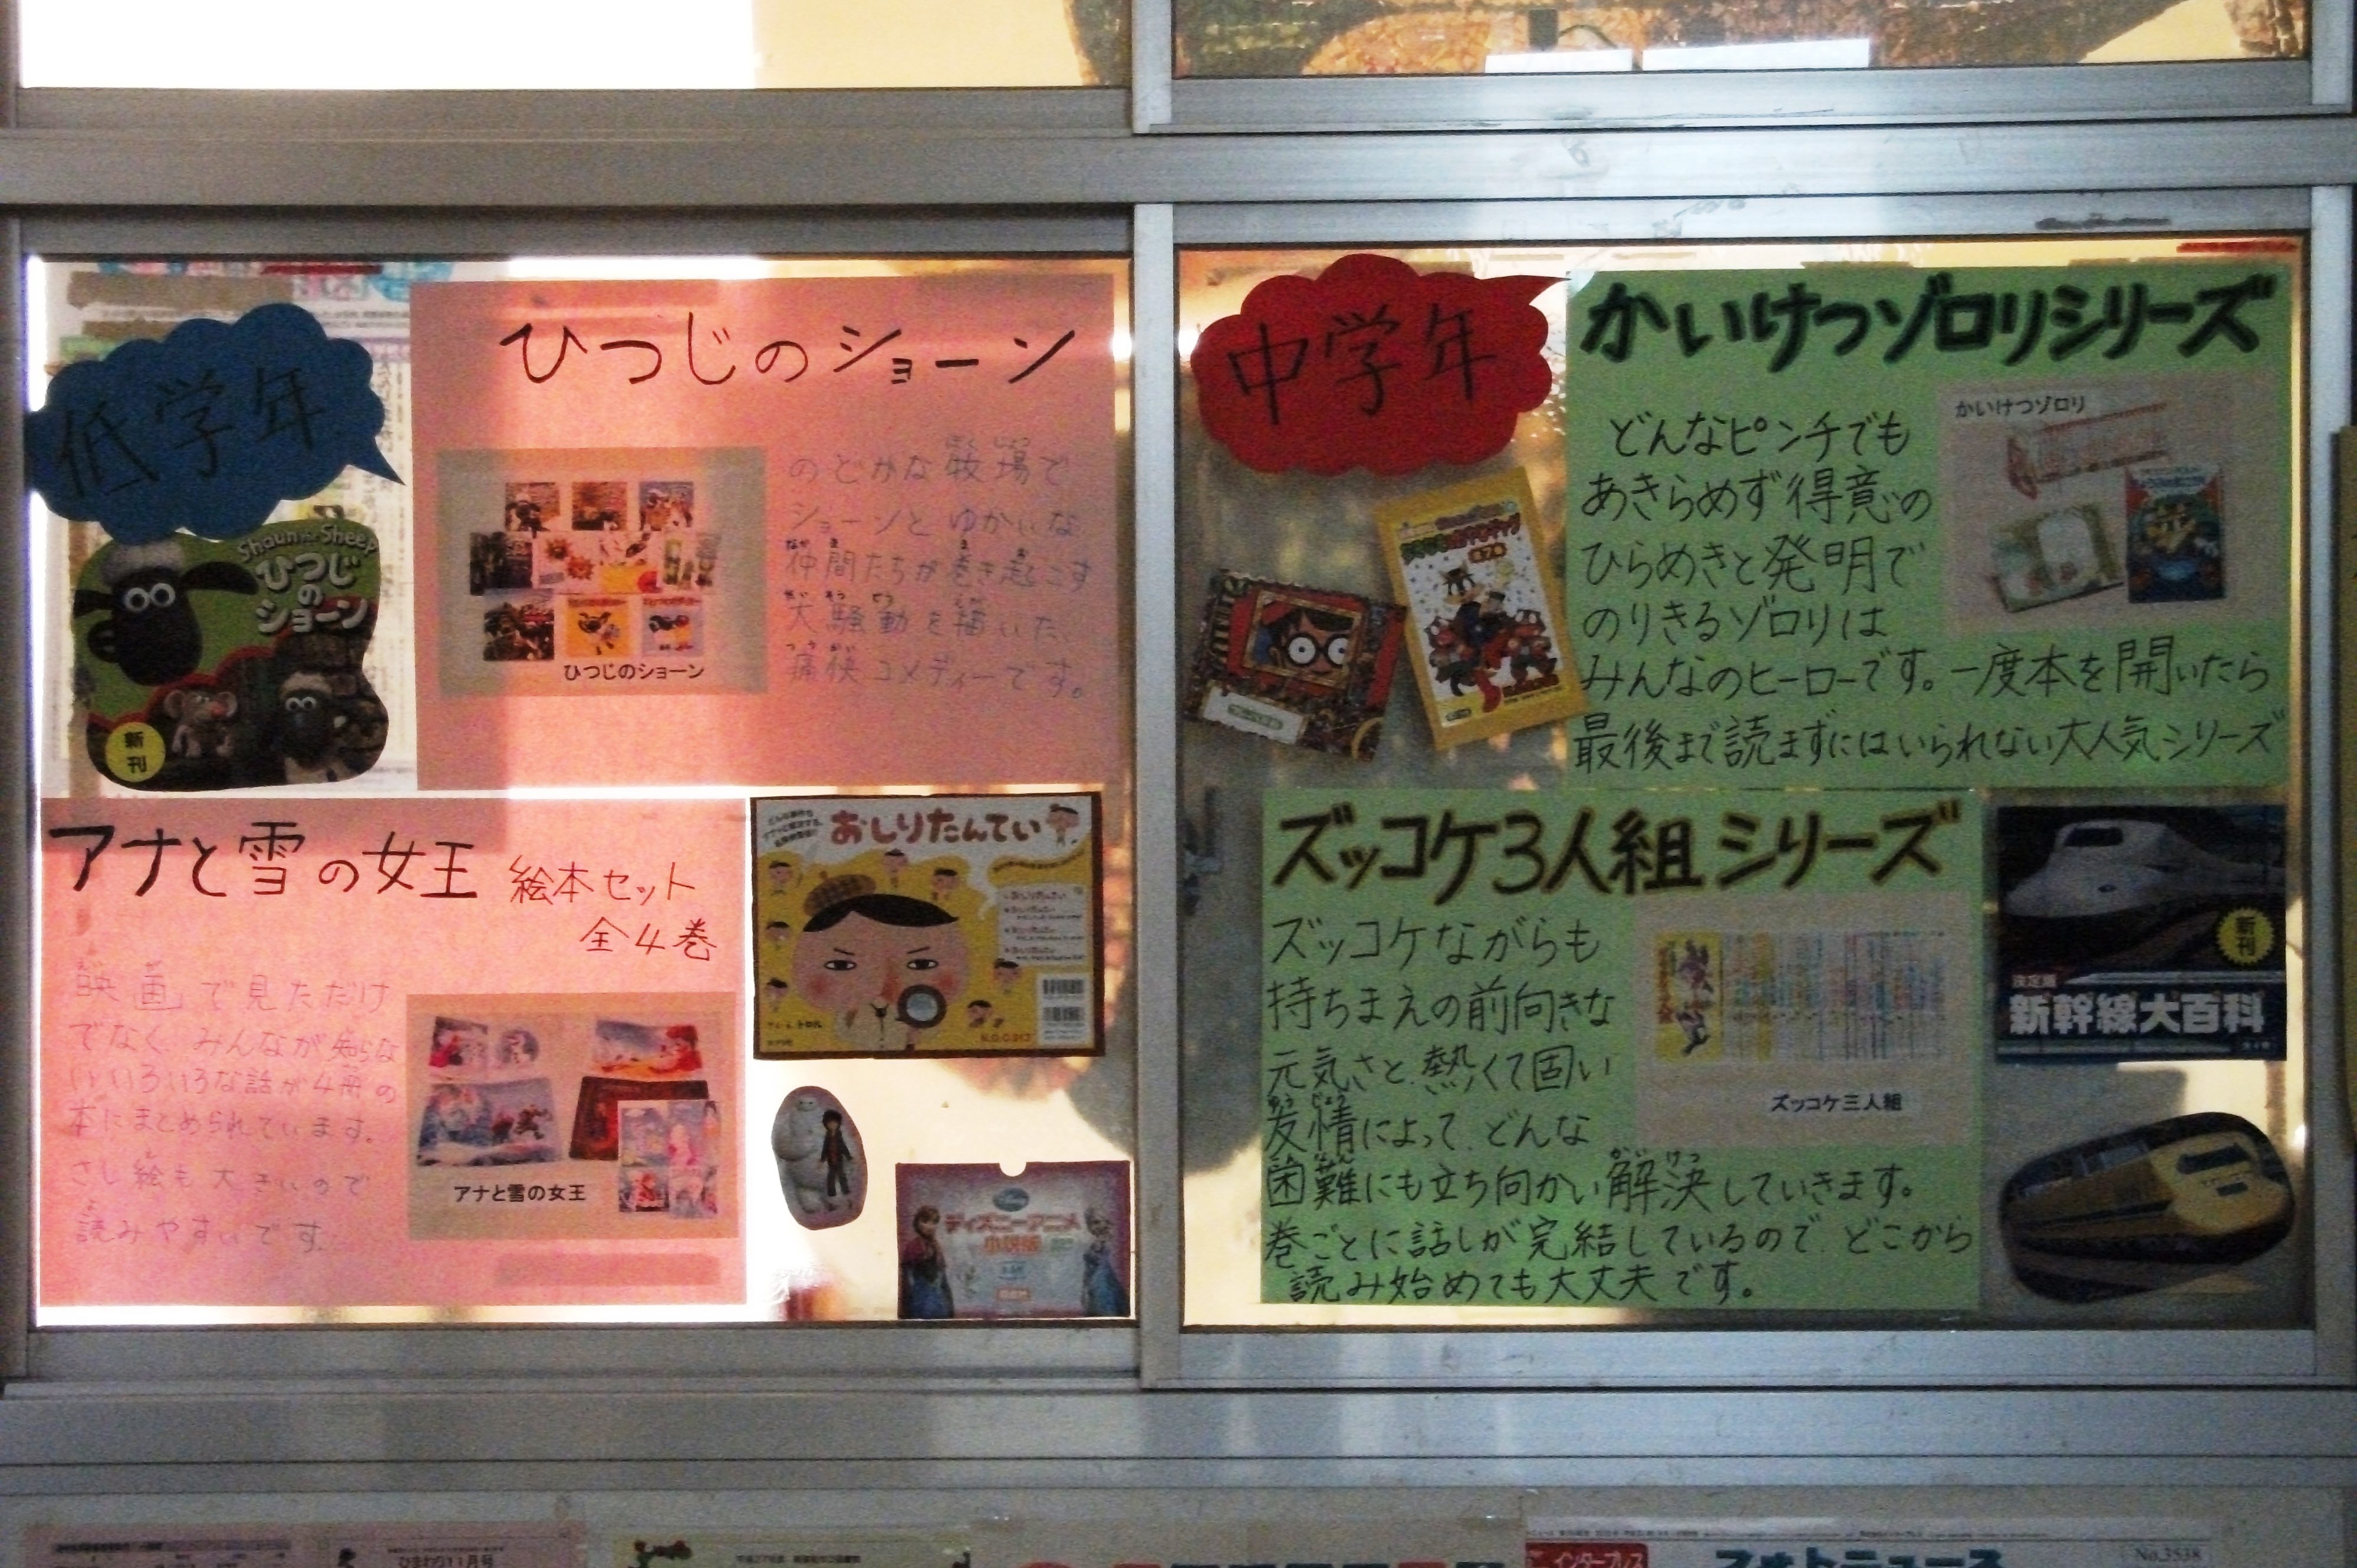 低学年
ひつじのショーン
のどかな牧場で
ショーンとゆかいな
仲間たちが巻き起こす
大騒動を描いた、
痛快コメディーです。
ひつじのショーン
Shaun the Sheep
ひつじ
の
ショーン
新
刊
アナと雪の女王 絵本セット
全4巻
映画で見ただけ
でなく、みんなが知らな
いいろいろな話が4冊の
本にまとめられています。
さし絵も大きいので
読みやすいです。
アナと雪の女王
おしりたんてい
ディズニーアニメ
小説版
中学年
かいけつゾロリシリーズ
どんなピンチでも
あきらめず得意の
ひらめきと発明で
のりきるゾロリは
みんなのヒーローです。一度本を開いたら
最後まで読まずにはいられない大人気シリーズ
かいけつゾロリ
ズッコケ3人組シリーズ
ズッコケながらも
持ちまえの前向きな
元気さと、熱くて固い
友情によって、どんな
困難にも立ち向かい解決していきます。
巻ごとに話しが完結しているので、どこから
読み始めても大丈夫です。
ズッコケ三人組
新
刊
決定版
新幹線大百科
ひまわり11月号
インタープレス
フォトニュース
No.3538